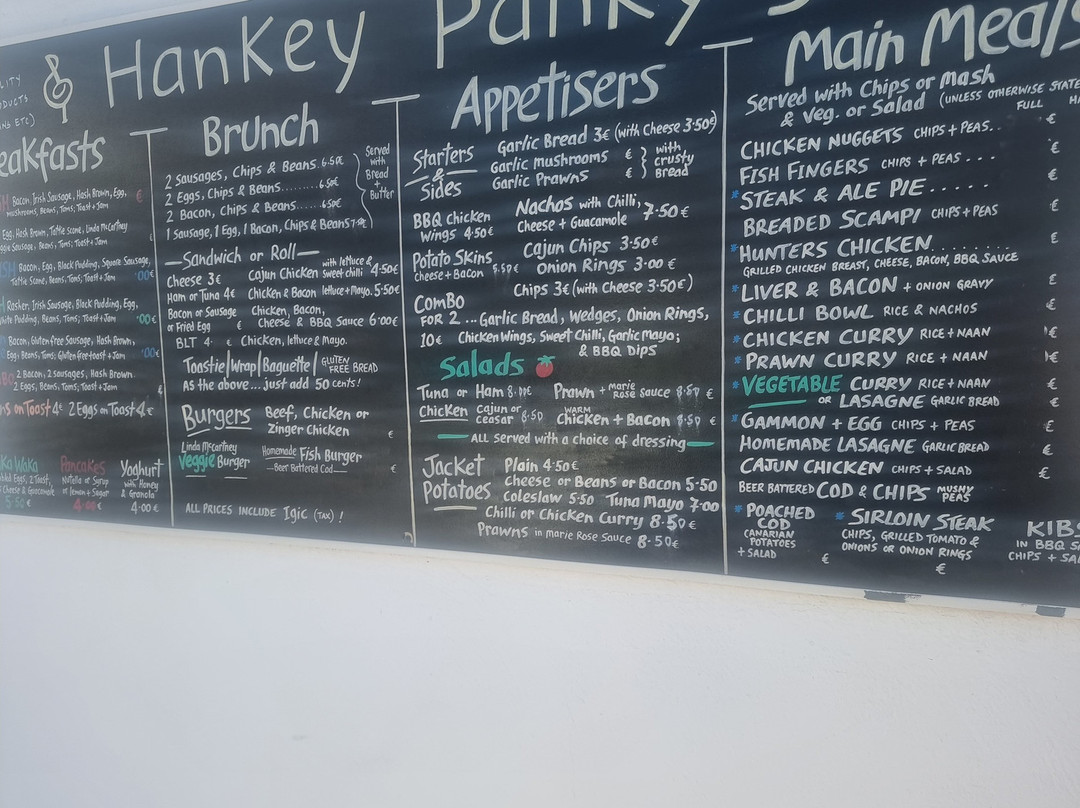 Hankey Panky's
eakfasts
Bacon, Irish Sausage, Hash Brown, Egg, €
mushrooms, Beans, Toms; Toast + Jam
Egg, Hash Brown, Tattie Scone, Linda McCartney
Sausage, Beans, Toms; Toast + Jam
Bacon, Egg, Black Pudding, Square Sausage,
Tattie Scone, Beans, Toms; Toast + Jam 00€
Rasher, Irish Sausage, Black Pudding, Egg,
White Pudding, Beans, Toms; Toast + Jam 00€
Bacon, Gluten free Sausage, Hash Brown,
Egg, Beans, Toms; Gluten free toast + Jam 00€
2 Bacon, 2 Sausages, Hash Brown
2 Eggs, Beans, Toms; Toast + Jam
on Toast 4€ 2 Eggs on Toast 4€
Ka Waka
Eggs, 2 Toast,
Cheese & Guacamole
5.50€
Pancakes
Nutella or Syrup
or lemon + Sugar
4.00€
Yoghurt
with Honey
& Granola
4.00€
Brunch
2 Sausages, Chips & Beans. 6.50€
2 Eggs, Chips & Beans........ 6.50€
2 Bacon, Chips & Beans..... 6.50€
1 Sausage, 1 Egg, 1 Bacon, Chips & Beans
Served
with
Bread
+
Butter
—Sandwich or Roll—
Cheese 3€ Cajun Chicken with lettuce & sweet chilli 4.50€
Ham or Tuna 4€ Chicken & Bacon lettuce + Mayo. 5.50€
Bacon or Sausage
or Fried Egg €
Chicken, Bacon,
Cheese & BBQ Sauce 6.00€
BLT 4. € Chicken, lettuce & Mayo.
Toastie/Wrap/Baguette/ GLUTEN FREE BREAD
As the above... just add 50 cents!
Burgers Beef, Chicken or
Zinger Chicken €
Linda McCartney
Veggie Burger
Homemade Fish Burger
—Beer Battered Cod— €
ALL PRICES INCLUDE Igic (TAX) !
Appetisers
Starters
&
Sides
Garlic Bread 3€ (with Cheese 3.50€)
Garlic mushrooms €
Garlic Prawns €
with
crusty
Bread
BBQ Chicken
Wings 4.50€
Nachos with Chilli,
Cheese + Guacamole 7.50€
Potato Skins
Cheese + Bacon 5.50€
Cajun Chips 3.50€
Onion Rings 3.00€
Chips 3€ (with Cheese 3.50€)
ComBo
FOR 2... Garlic Bread, Wedges, Onion Rings,
10€ Chicken Wings, Sweet Chilli, Garlic Mayo;
& BBQ Dips
Salads
Tuna or Ham Prawn + marie rose sauce 8.50 €
Chicken cajun or ceasar 8.50 WARM Chicken + Bacon 8.50 €
ALL served with a choice of dressing
Jacket
Potatoes
Plain 4.50€
Cheese or Beans or Bacon 5.50
Coleslaw 5.50 Tuna Mayo 7.00
Chilli or Chicken Curry 8.50€
Prawns in marie Rose Sauce 8.50€
Main Meals
Served with Chips or Mash
& Veg. or Salad (UNLESS OTHERWISE STATE
FULL HA
CHICKEN NUGGETS CHIPS + PEAS.. €
FISH FINGERS CHIPS + PEAS.... €
*STEAK & ALE PIE...... €
BREADED SCAMPI CHIPS + PEAS €
*HUNTERS CHICKEN......... €
GRILLED CHICKEN BREAST, CHEESE, BACON, BBQ SAUCE
*LIVER & BACON + ONION GRAVY €
*CHILLI BOWL RICE & NACHOS €
*CHICKEN CURRY RICE + NAAN €
*PRAWN CURRY RICE + NAAN €
*VEGETABLE CURRY RICE + NAAN €
OR LASAGNE GARLIC BREAD €
*GAMMON + EGG CHIPS + PEAS €
HOMEMADE LASAGNE GARLIC BREAD €
CAJUN CHICKEN CHIPS + SALAD €
BEER BATTERED COD & CHIPS MUSHY PEAS
*POACHED
COD
CANARIAN
POTATOES
+ SALAD €
*SIRLOIN STEAK
CHIPS, GRILLED TOMATO &
ONIONS OR ONION RINGS
€
IN BBQ S
CHIPS + SAL